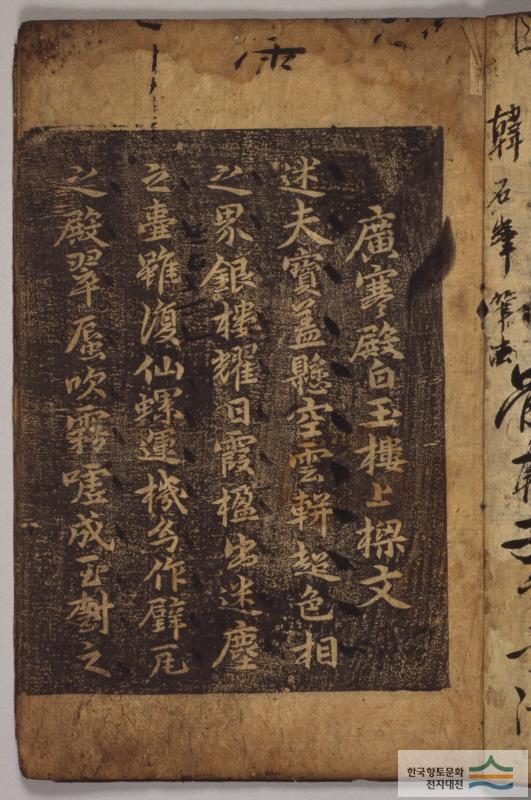 韓石峯筆法
廣寒殿白玉樓上樑文
述夫寶盖懸空雲軿超色相
之界銀樓耀日霞楹出迷塵
之壺雖復仙螺運機幻作璧瓦
之殿翠蜃吹霧噓成玉樹之
한국향토문화
전자대전